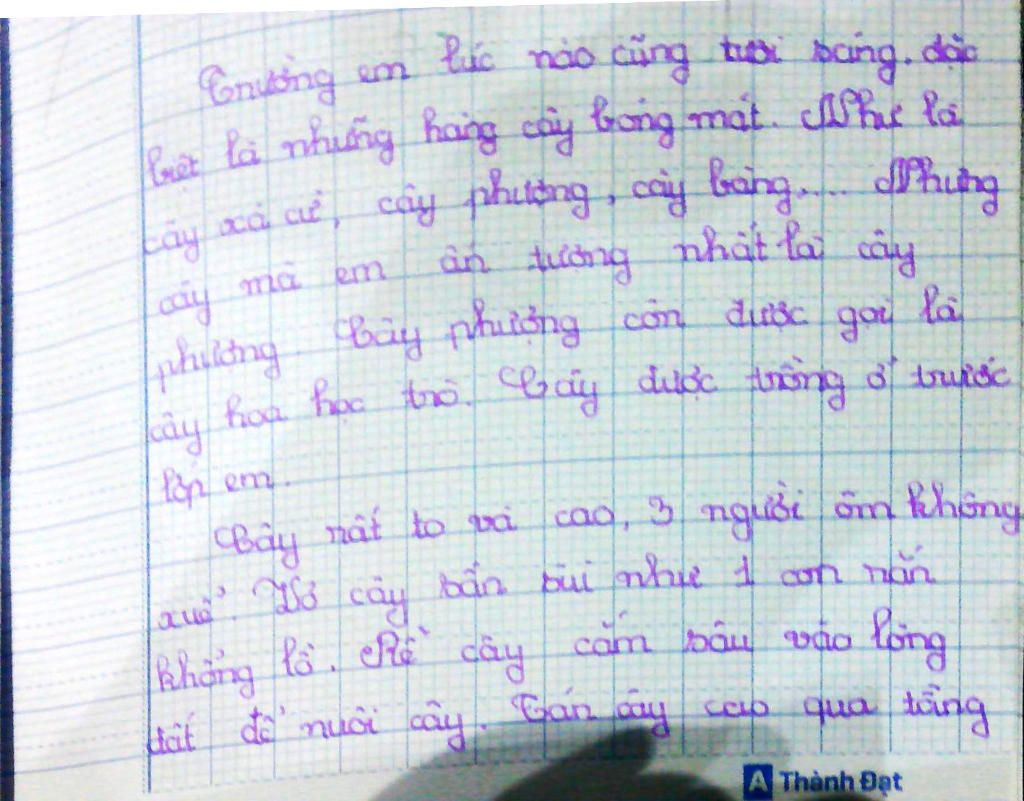 Trường em lúc nào cũng tươi sáng. đặc
biệt là những hàng cây bóng mát. Như là
cây xà cừ, cây phượng, cây bàng.... Nhưng
cây mà em ấn tượng nhất là cây
phượng Cây phượng còn được gọi là
cây hoa học trò. Cây được trồng ở trước
lớp em.
Cây rất to và cao, 3 người ôm không
xuể. Vỏ cây sần sùi như 1 con rắn
khổng lồ. Rễ cây cắm sâu vào lòng
đất để nuôi cây. Tán cây cao qua tầng
A Thành Đạt